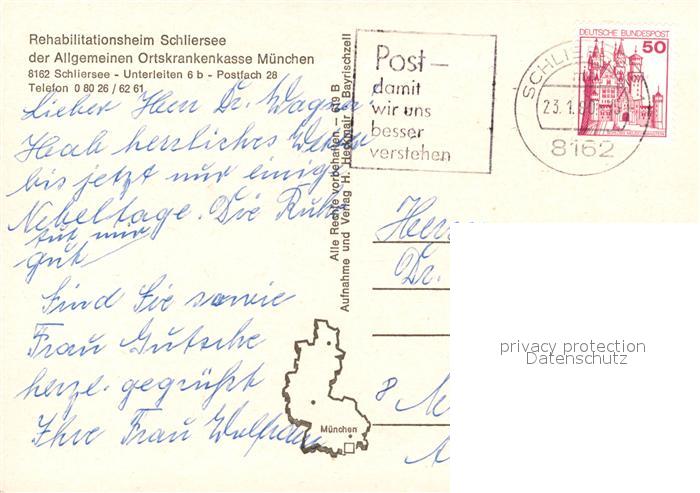 Rehabilitationsheim Schliersee
der Allgemeinen Ortskrankenkasse München
8162 Schliersee - Unterleiten 6 b - Postfach 28
Telefon 0 80 26 / 62 61
Lieber Herr Dr. Wagner
Hab herrliches
bis jetzt nur einige
Nebeltage. Die Ruhe
tut mir
gut
Sind Sie sowie
Frau Gutsche
herzl. gegrüßt
Ihre Frau
Alle Rechte vorbehalten - 619 B
Aufnahme und Verlag H. Heckmair Bayrischzell
München
Post-
damit
wir uns
besser
verstehen
SCHLIE
23.1.90
8162
DEUTSCHE BUNDESPOST
50
Her
Dr.
8 M
privacy protection
Datenschutz